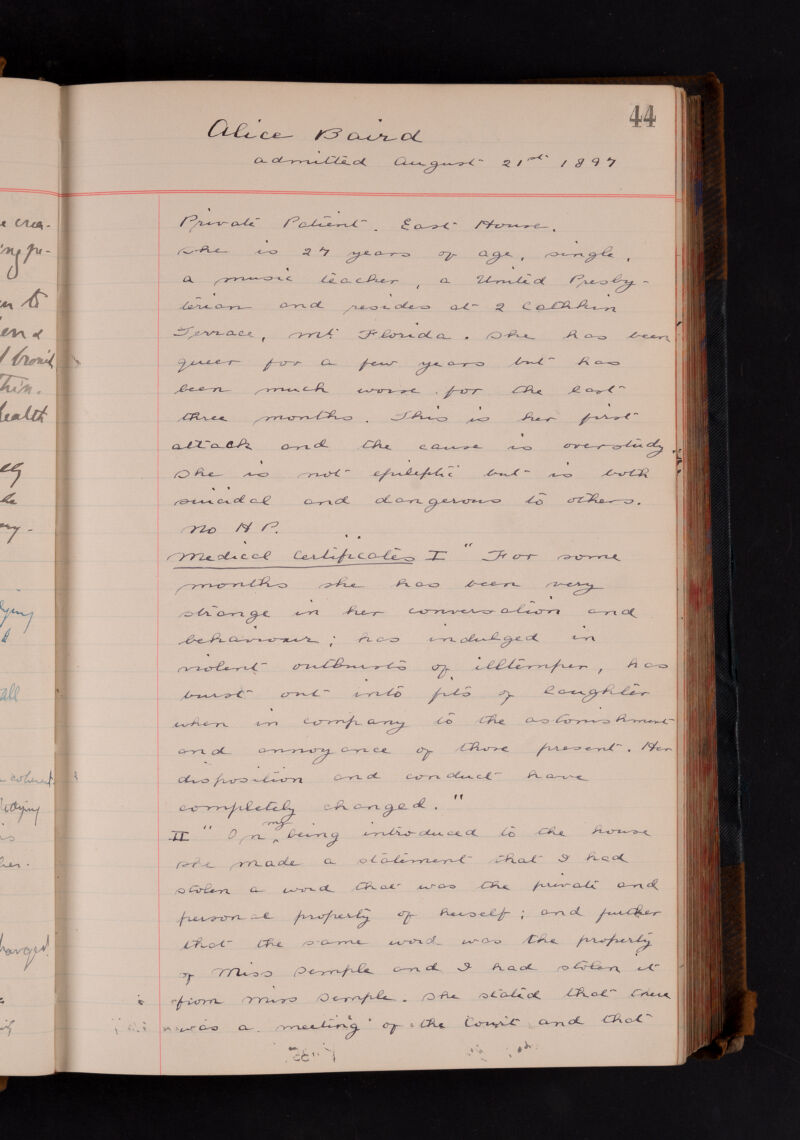 44
Alice Baird
admitted August 21st 1897
Private Patient. East House.
She is 27 years of age, single,
a music teacher, a United Presby-
terian and resides at 2 Cathkin
Terrace, Mt. Florida. She has been
queer for a few years but has
been much worse for the last
three months. This is her first
attack and the cause is overstudy.
She is not epileptic but is both
suicidal and dangerous to others.
No H P.
Medical Certificates I "For some
months she has been very
strange in her conversation and
behaviour; has indulged in
violent outbursts of illtemper, has
burst out into fits of laughter
when in company to the astonishment
and annoyance of those present. Her
disposition and conduct have
completely changed."
II "On my being introduced to the house
she made a statement that I had
stolen a word that was the private and
personal property of herself; and further
that the same word was the property
of Miss Semple and I had stolen it
from Miss Semple. She stated that there
was a meeting of the Court and that